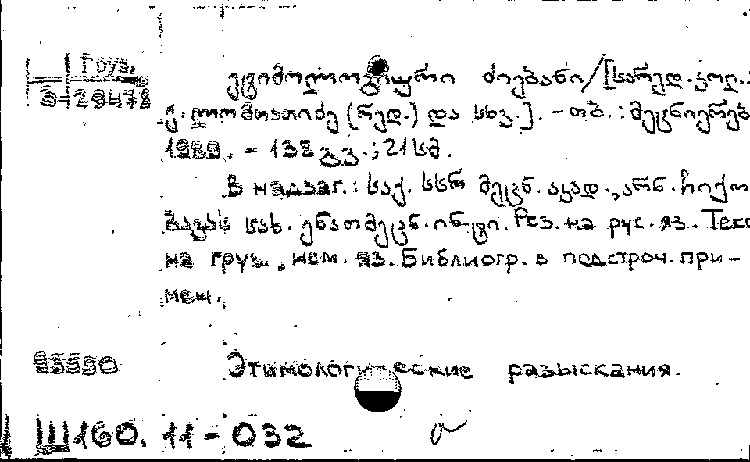 Груз.
3-29478
ეტიმოლოგიური ძიებანი/[სარედ.კოლ.:
ქ.ლომთათიძე (რედ.) და სხვ.]. - თბ. : მეცნიერებ
1988. - 132 გვ. ; 21 სმ.
В надзаг.: საქ. სსრ მეცნ. აკად., არნ. ჩიქო
ბავას სახ. ენათმეცნ. ინ-ტი. Рез. на рус. яз. Текс
на груз., нем. яз. Библиогр. в подстроч. при-
меч.
Этимологические разыскания.
Ш160.11-032